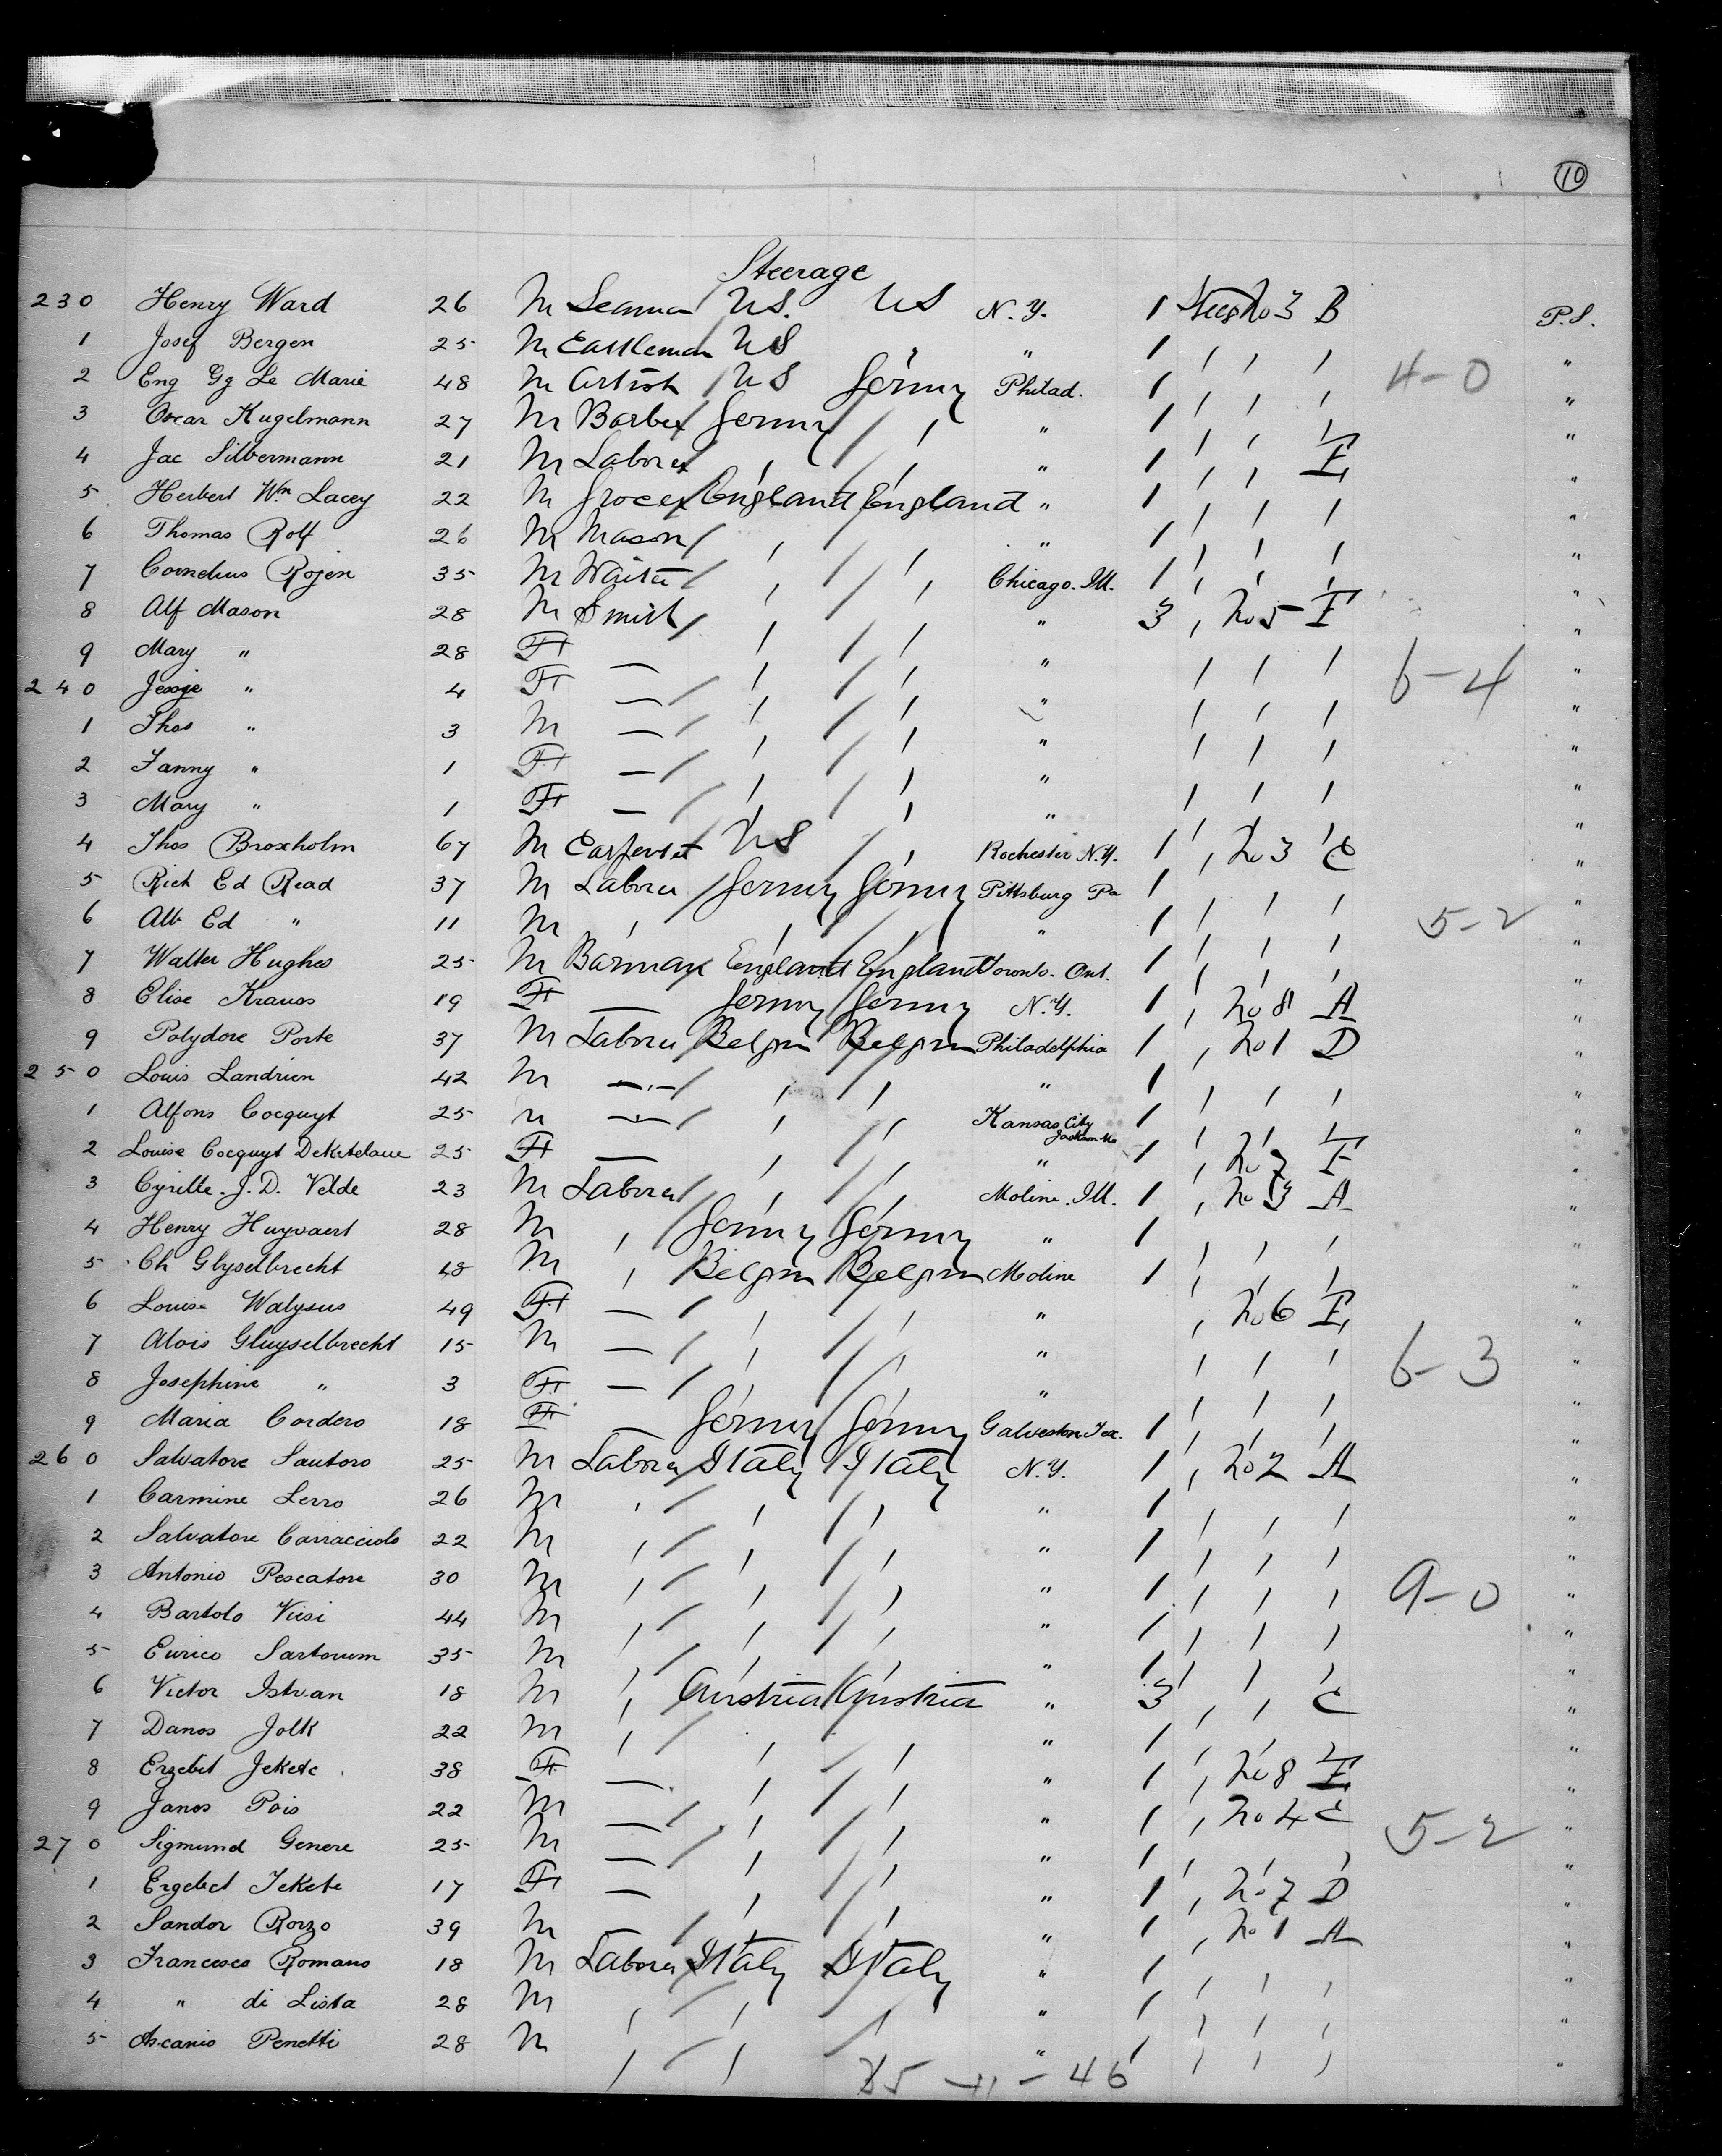 10
Steerage
230 Henry Ward 26 M Seaman U.S. U S N.Y. 1 No 3 B P.S.
1 Josef Bergen 25 M Cattleman U S " 1 "
2 Eng Gg Le Marie 48 M Artist U S Germy Philad. 1 "
4-0
3 Oscar Kugelmann 27 M Barber Germy " 1 "
4 Jac Silbermann 21 M Laborer " 1 E "
5 Herbert Wm Lacey 22 M Grocer England England " 1 "
6 Thomas Rolf 26 M Mason " 1 "
7 Cornelius Rojen 35 M Waiter Chicago. Ill. 1 "
8 Alf Mason 28 M Smith " 3 No 5 E "
9 Mary " 28 F — " "
6-4
240 Jessie " 4 F — " "
1 Thos " 3 M — " "
2 Fanny " 1 F — " "
3 Mary " 1 F — " "
4 Thos Broxholm 67 M Carpenter U S Rochester N.Y. 1 No 3 C "
5 Rich Ed Read 37 M Laborer Germy Germy Pittsburg Pa 1 "
6 Alb Ed " 11 M " 1 "
5-2
7 Walter Hughes 25 M Barman England England Toronto. Ont. 1 "
8 Elise Krauss 19 F — Germy Germy N.Y. 1 No 8 A "
9 Polydore Porte 37 M Laborer Belgm Belgm Philadelphia 1 No 1 D "
250 Louis Landrien 42 M " 1 "
1 Alfons Cocquyt 25 M Kansas City 1 "
2 Louise Cocquyt 25 F — " 1 No 7 F "
3 Cyrille. J. D. Velde 23 M Laborer Moline. Ill. 1 No 3 A "
4 Henry Huyvaert 28 M Germy Germy " 1 "
5 Ch Glyselbrecht 48 M Belgm Belgm Moline 1 "
6 Louise Walysus 49 F — " No 6 E "
7 Alois Gluyselbrecht 15 M — " "
6-3
8 Josephine " 3 F — " "
9 Maria Cordero 18 F — Germy Germy Galveston Tex. 1 "
260 Salvatore Santoro 25 M Laborer Italy Italy N.Y. 1 No 2 A "
1 Carmine Lerro 26 M " 1 "
2 Salvatore Carracciolo 22 M " 1 "
3 Antonio Pescatore 30 M " 1 "
9-0
4 Bartolo Viesi 44 M " 1 "
5 Enrico Sartorum 35 M " 1 "
6 Victor Istvan 18 M Austria Austria " 3 C "
7 Danos Jolk 22 M " 1 "
8 Erzebet Jekete 38 F — " 1 No 8 E "
9 Janos Pois 22 M — " 1 No 4 C "
5-2
270 Sigmund Genere 25 M — " 1 "
1 Erzebet Jekete 17 F — " 1 No 7 D "
2 Sandor Rorzo 39 M — " 1 No 1 A "
3 Francesco Romano 18 M Laborer Italy Italy " 1 "
4 " di Lista 28 M " 1 "
5 Ascanio Penetti 28 M " 1 "
35-11-46